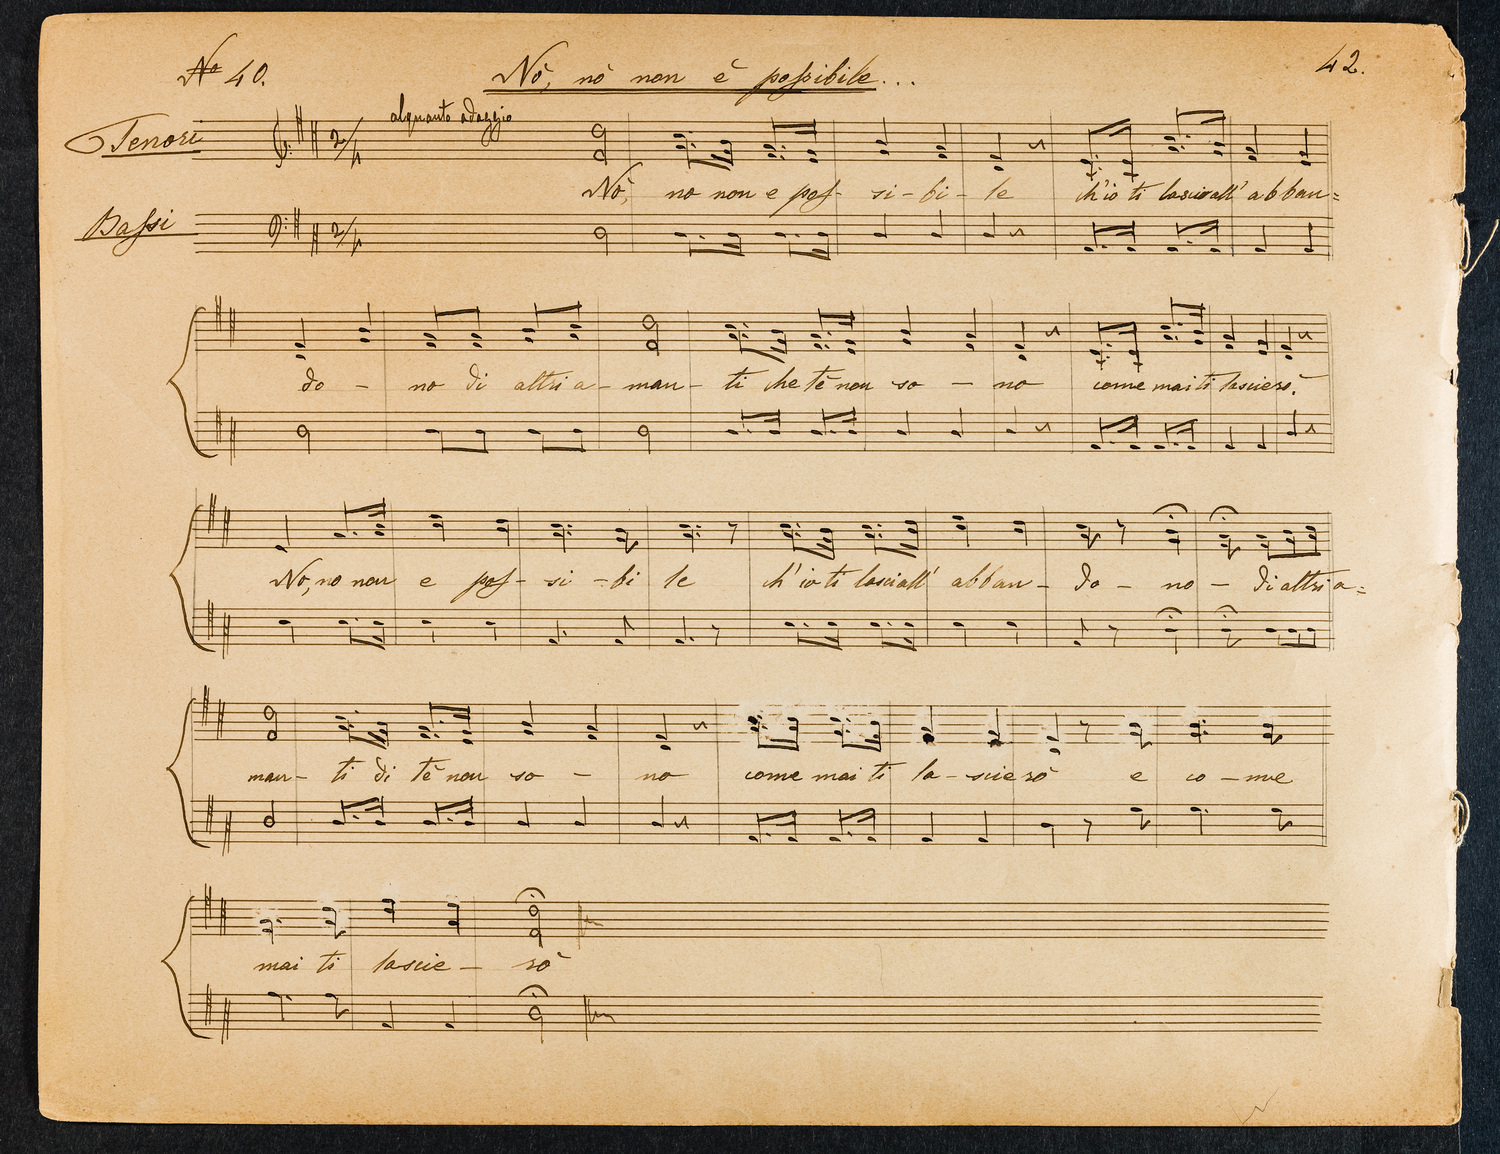 No 40. Nò, nò non è possibile... 42.
alquanto adaggio
Tenori
2/4
Nò, no non e pos- si-bi-le ch'io ti lasciall' abban=
Bassi
2/4
do - no di altri a-man-ti che tè non so - no come mai ti lascierò.
No, no non e pos-si-bi le ch'io ti lasciall' abban-do-no- di altri a=
man-ti di tè non so - no come mai ti la-scierò e co-me
mai ti lascie-rò